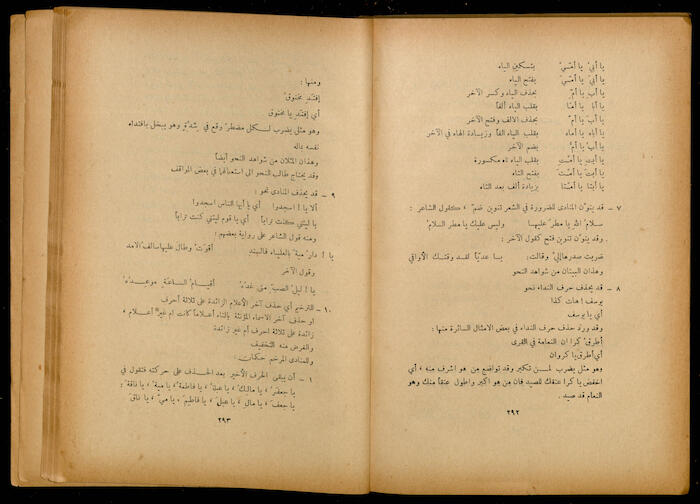 يا أبيْ يا أمّيْ بتسكين الياء
يا أبيَ يا أمّيَ بفتح الياء
يا أبِ يا أمِّ بحذف الياء وكسر الآخر
يا أبا يا أمّا بقلب الياء ألفاً
يا أبَ يا أمَّ بحذف الالف وفتح الآخر
يا أباه يا أماه بقلب الياء الفاً وزيادة الهاء في الآخر
يا أبُ يا أمُّ بضم الآخر
يا أبتِ يا أمّتِ بقلب الياء تاء مكسورة
يا أبتَ يا أمّتَ بفتح التاء
يا أبتا يا أمّتا بزيادة ألف بعد التاء
٧ – قد ينوّن المنادى للضرورة في الشعر تنوين ضمّ ، كقول الشاعر :
سلامُ اللهِ يا مطرٌ عليها وليس عليك يا مطر السلامُ
وقد ينون تنوين فتح كقول الآخر :
ضربت صدرها إليّ وقالت: يا عديّاً لقد وقتك الأواقي
وهذان البيتان من شواهد النحو
٨ – قد يحذف حرف النداء نحو
يوسف ! هات كذا
أي يا يوسف
وقد ورد حذف حرف النداء في بعض الامثال السائرة منها :
أطرِقْ كرا إن النعامة في القرى
أي أطرق يا كروان
وهو مثل يضرب لمن تكبر وقد تواضع من هو اشرف منه ، أي
اخفض يا كرا عنقك للصيد فان من هو اكبر واطول عنقاً منك وهو
النعام قد صيد .
٢٩٢
ومنها :
إفتدِ مخنوقُ
أي إفتدِ يا مخنوق
وهو مثل يضرب لكل مضطر وقع في شدّةٍ وهو يبخل بافتداء
نفسه بماله
وهذان المثلان من شواهد النحو أيضاً
وقد يحتاج طالب النحو الى استعمالها في بعض المواقف
٩ – قد يحذف المنادى نحو :
ألا يا ! اسجدوا أي يا أيها الناس اسجدوا
يا ليتني كنت تراباً أي يا قوم ليتني كنت تراباً
ومنه قول الشاعر على رواية بعضهم :
يا ! دارُ ميةَ بالعلياء فالسند أقوتْ وطال عليها سالف الامد
وقول الآخر
يا ! ليلُ الصبّ متى غدُه أقيامُ الساعةِ موعدُه
١٠ – الترخيم أي حذف آخر الأعلام الزائدة على ثلاثة أحرف
او حذف آخر الاسماء المؤنثة بالتاء أعلاماً كانت ام غير أعلام ،
زائدة على ثلاثة احرف أم غير زائدة
والغرض منه التخفيف
وللمنادى المرخم حكمان :
١ – أن يبقى الحرف الأخير بعد الحذف على حركته فتقول في
يا جعفرُ ، يا مالك ، يا عبلة ، يا فاطمة ، يا مية ، يا ناقة :
يا جعفَ ، يا مالِ ، يا عبلَ ، يا فاطمَ ، يا ميَّ ، يا ناقَ
٢٩٣